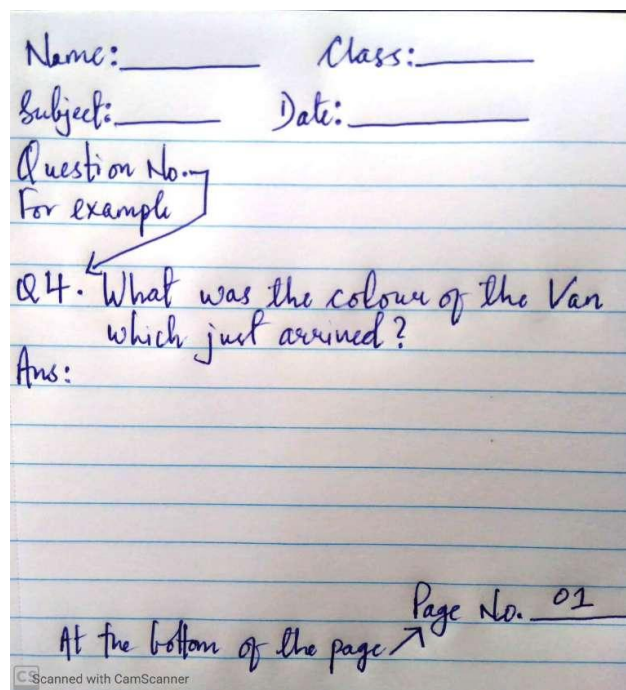 Name: Class:
Subject: Date:
Question No.
For example
Q4. What was the colour of the Van
which just arrived?
Ans:
Page No. 01
At the bottom of the page
CS Scanned with CamScanner